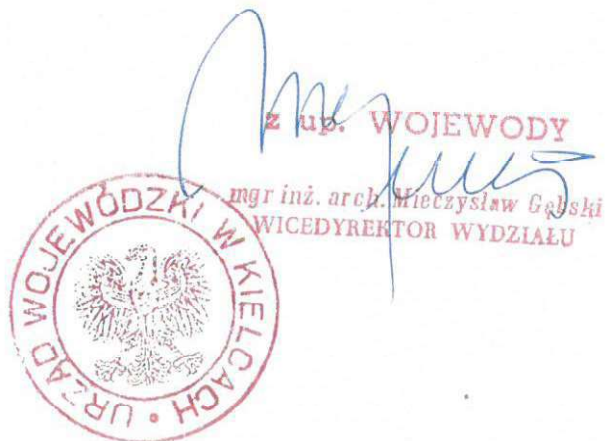 z up. WOJEWODY
mgr inż. arch. Mieczysław Gębski
WICEDYREKTOR WYDZIAŁU
URZĄD WOJEWÓDZKI W KIELCACH •